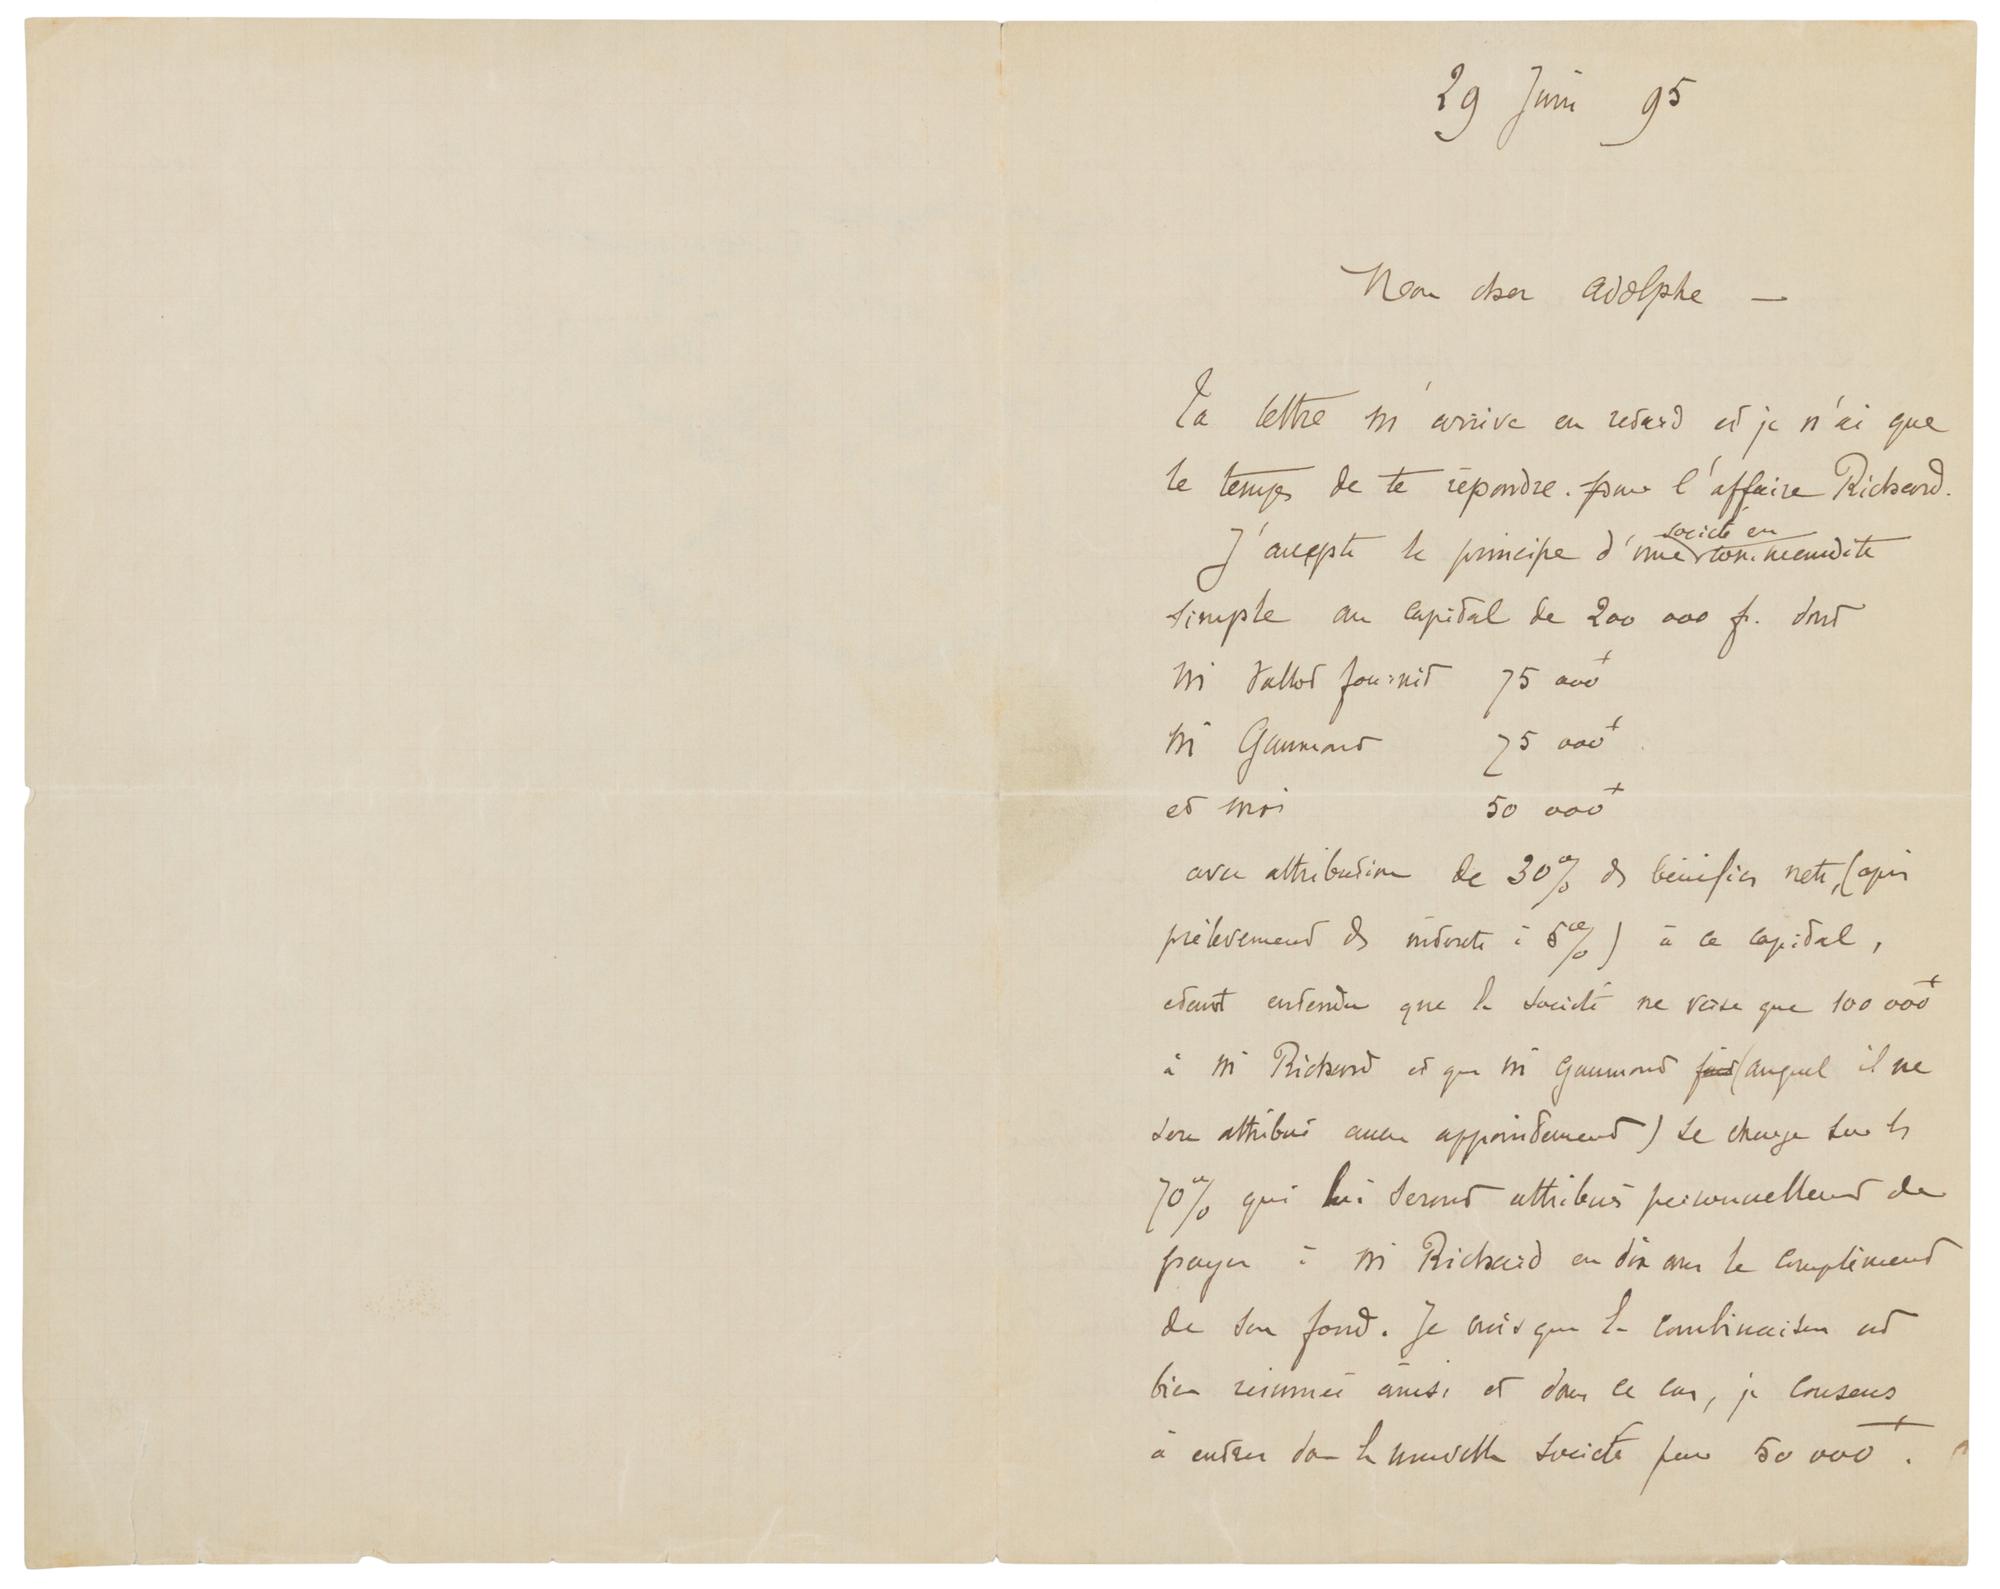 29 Juin 95
Mon cher Adolphe —
Ta lettre m'arrive en retard et je n'ai que
le temps de te répondre. pour l'affaire Richard.
J'accepte le principe d'une société en commandite
simple au capital de 200 000 f. dont
M Vallot fournit 75 000f
M Gaumont 75 000f
et moi 50 000f
avec attribution de 30% des bénéfices nets, (après
prélèvement des intérêts à 5%) à ce capital,
étant entendu que la société ne verse que 100 000f
à M Richard et que M Gaumont fait (auquel il ne
sera attribué aucun appointement) se charge sur les
70% qui lui seront attribués personnellement de
payer à M Richard en dix ans le complément
de son fond. Je crois que la combinaison est
bien résumée ainsi et dans ce cas, je consens
à entrer dans la nouvelle société pour 50 000f.